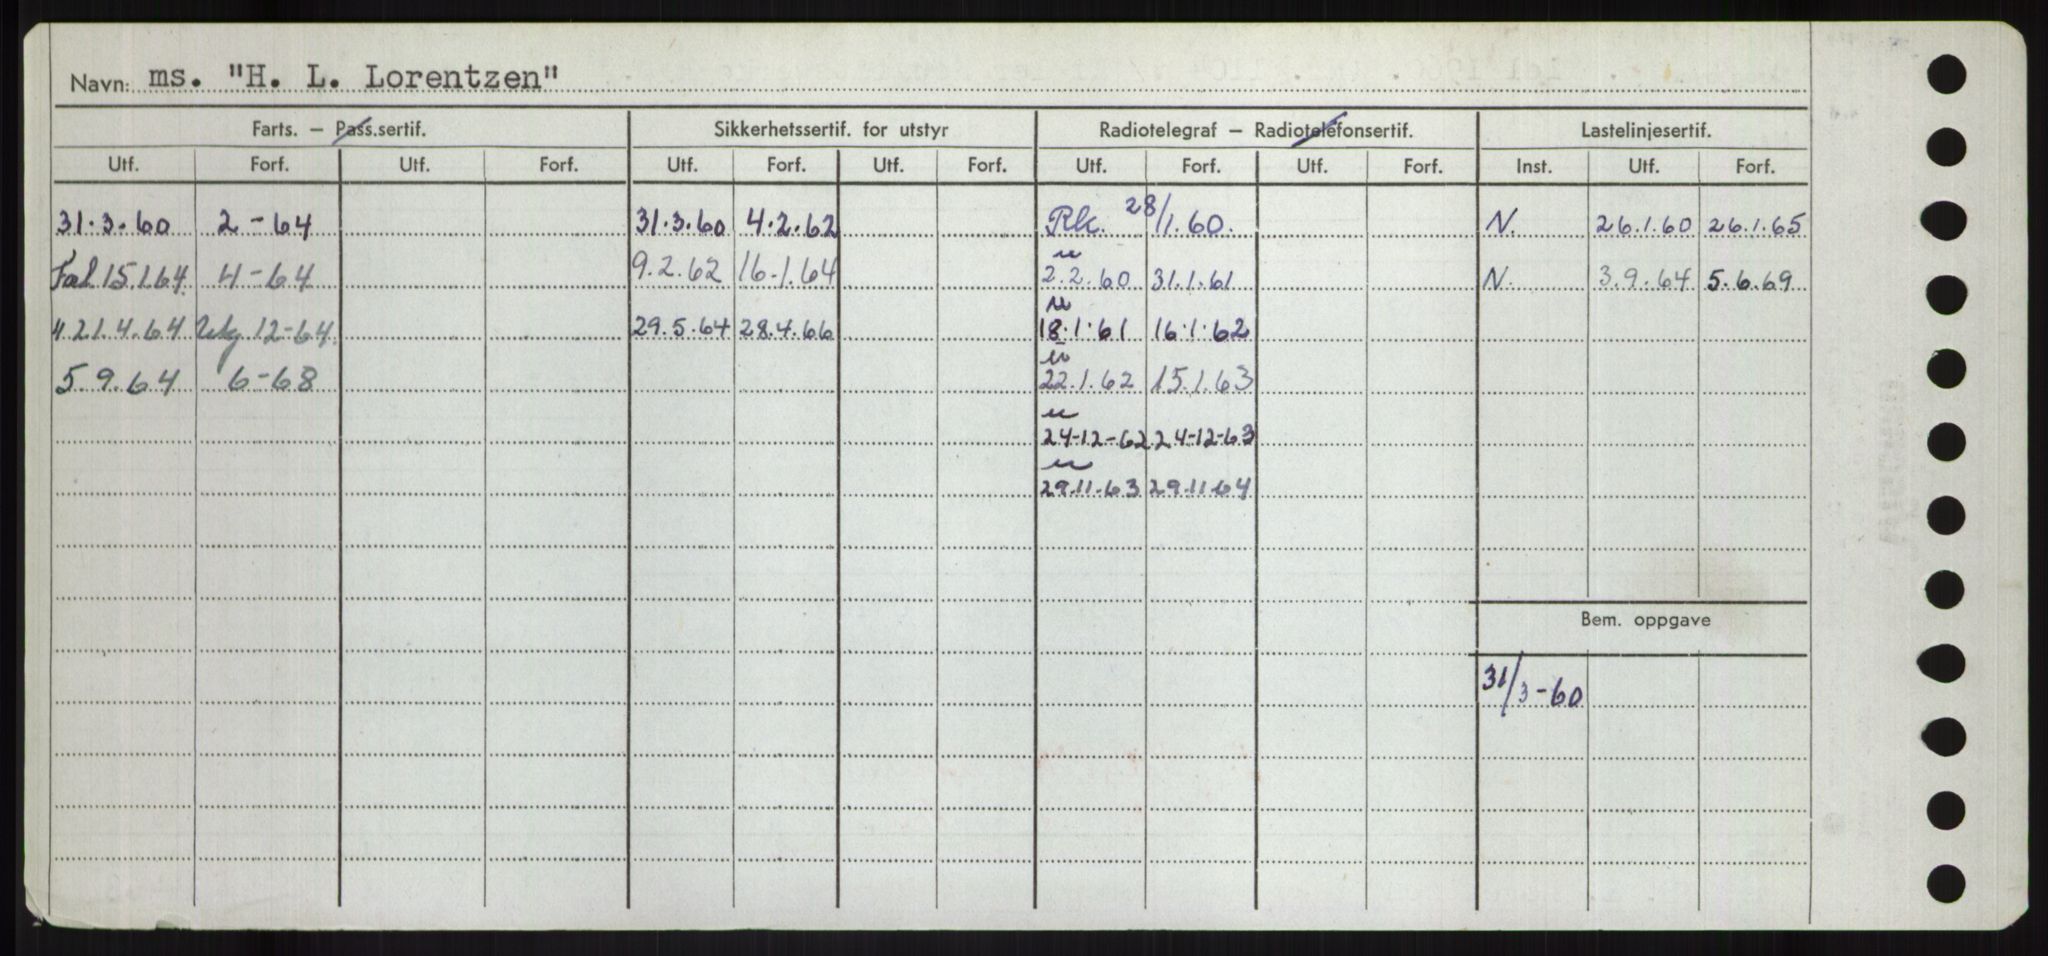 Navn: ms. "H. L. Lorentzen"
Farts. – Pass.sertif. Sikkerhetssertif. for utstyr Radiotelegraf – Radiotelefonsertif. Lastelinjesertif.
Utf. Forf. Utf. Forf. Utf. Forf. Utf. Forf. Utf. Forf. Utf. Forf. Inst. Utf. Forf.
31.3.60 2-64 31.3.60 4.2.62 Rk. 28/1.60. N. 26.1.60 26.1.65
Fal 15.1.64. 4-64 9.2.62 16.1.64 " 2.2.60 31.1.61 N. 3.9.64 5.6.69
" 21.4.64 12-64. 29.5.64 28.4.66 " 18.1.61 16.1.62
5.9.64 6-68 " 22.1.62 15.1.63
" 24-12-62 24-12-63
" 29.11.63 29.11.64
Bem. oppgave
31/3-60